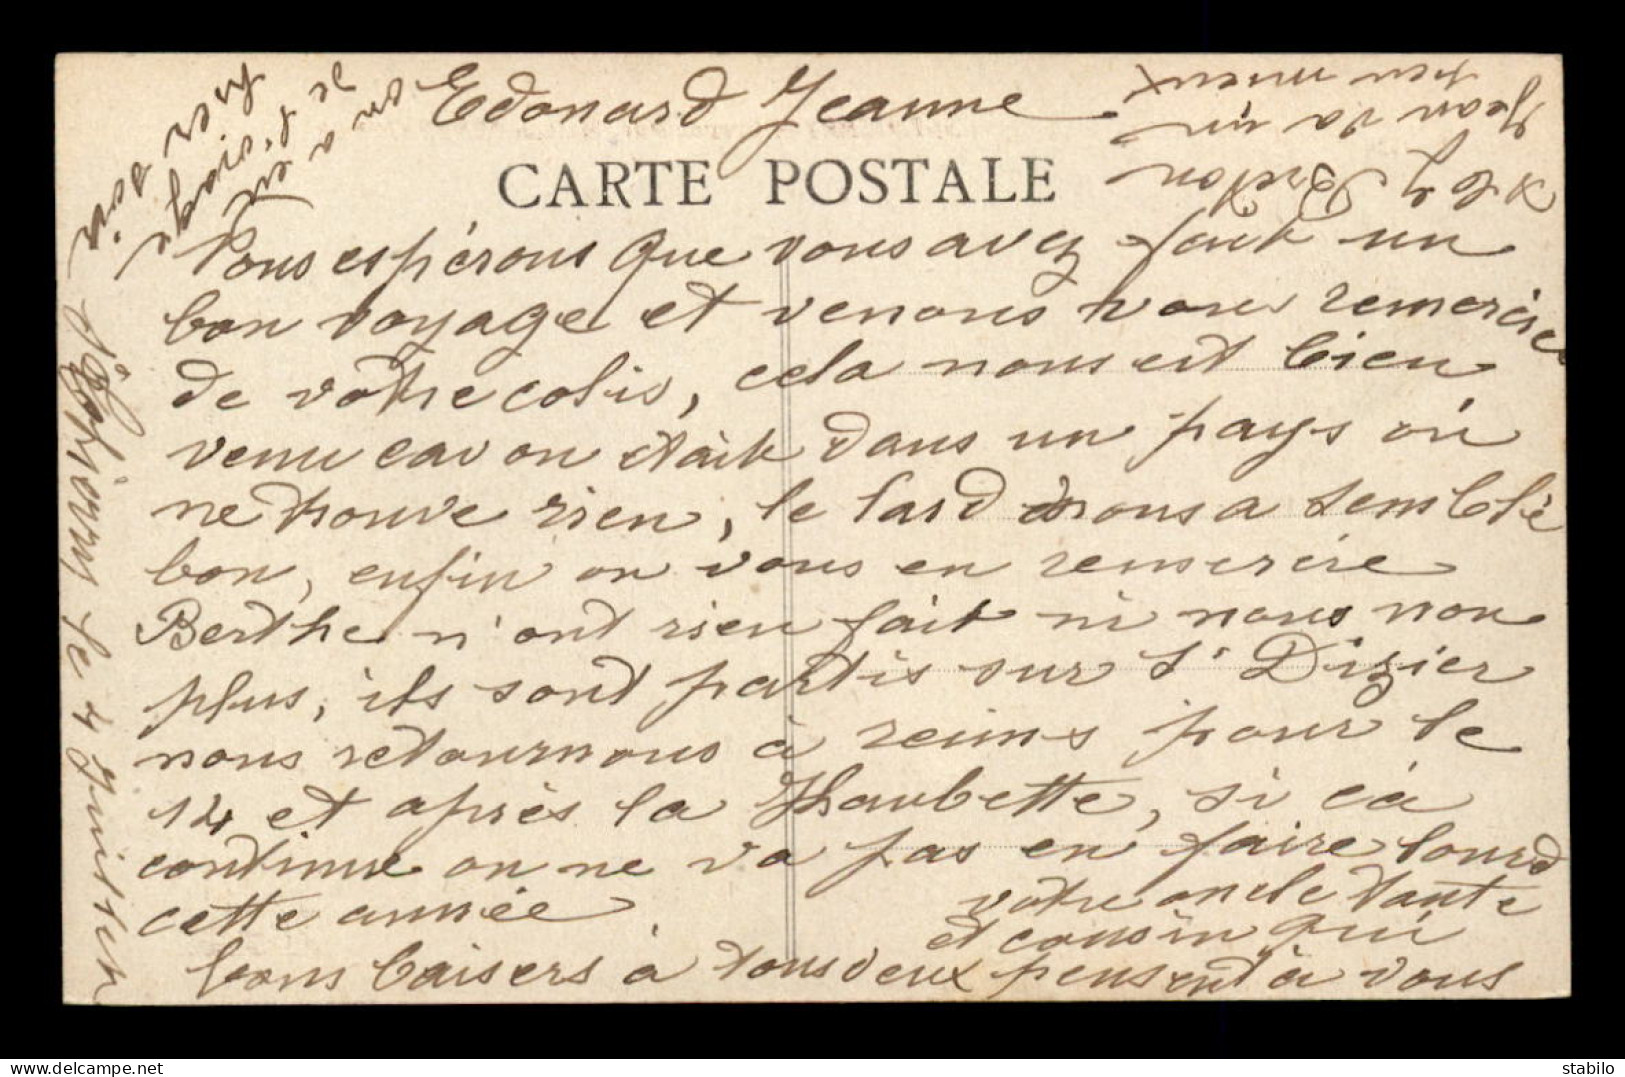 Edouard Jeanne
CARTE POSTALE
Nous espérons que vous avez fait un
bon voyage et venons vous remercier
de votre colis, cela nous est bien
venu car on était dans un pays où
ne trouve rien, le lard nous a semblé
bon, enfin on vous en remercie
Berthe n'ont rien fait ni nous non
plus, ils sont partis sur St Dizier
nous retournons à reims pour le
14 et après la Haubette, si ca
continue on ne va pas en faire lourd
cette année
votre oncle tante
et cousin qui
bons baisers à tous deux pensent à vous
le 4 Juillet
on a été
hier soir
Jean va un
peu mieux
Breton
stabilo